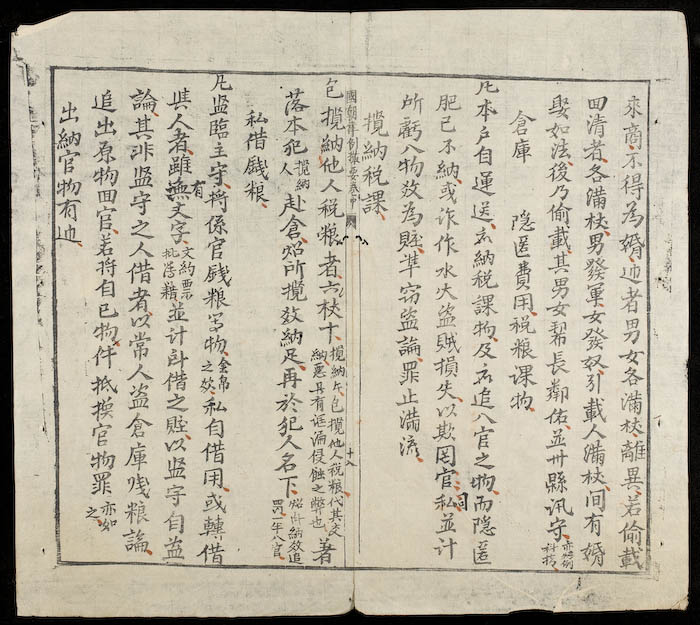 來商不得為婚違者男女各滿杖離異若偷載
回清者各滿杖男發軍女發奴引載人滿杖間有婚
娶如法後乃偷載其男女幫長鄰佑並卅縣汛守亦照例科括
倉庫 隐匿費用税粮課物
凡本戶自運送应納税課物及应追入官之物而隐匿
肥己不納或詐作水火盜賊損失以欺罔官司私並計
所虧入物数為賍準窃盗論罪止滿流
攬納税課
國朝律例撮要卷中 十八
包攬納他人税粮者六杖十攬納乍包攬他人税粮代其交納惡其有誆漏侵蝕之弊也著
落本犯攬納人赴倉照所攬数納足再於犯人名下照所納数追罰一半入官
私借錢粮
凡监臨主守將係官錢粮等物金帛之類私自借用或轉借
與人者雖有無文字文約票批簿籍並計所借之賍以监守自盗
論其非监守之人借者以常人盗倉庫錢粮論
追出原物回官若将自己物件抵換官物罪亦如之
出納官物有违